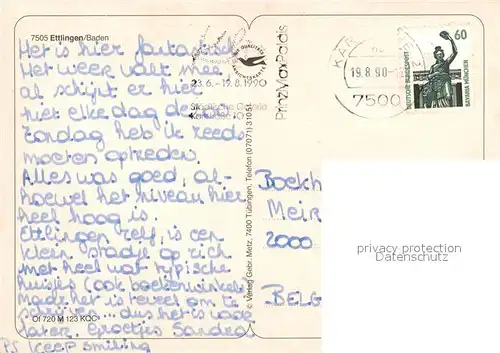 7505 Ettlingen/Baden
Het is hier fantas
Het weer valt mee
al schijnt er hier
niet elke dag de
Zondag heb ik reeds
moeten optreden.
Alles was goed, al-
hoewel het niveau hier
heel hoog is.
Ettlingen zelf, is een
klein stadje op zich
met heel wat typische
huisjes (ook boekenwinkels)
Maar het is teveel om te
dus het is voor
later. Groetjes Sandra
PS keep smiling
Of 720 M 123 KQC
© Verlag Gebr. Metz, 7400 Tübingen, Telefon (07071) 31051
23.6.-19.8.1990
Städtische Galerie
PrinzMaxPalais
19.8.90
7500
60
DEUTSCHE BUNDESPOST
BAVARIA MÜNCHEN
Boekh
Meir
2000
BELG
copyright protection
DARASERVICES